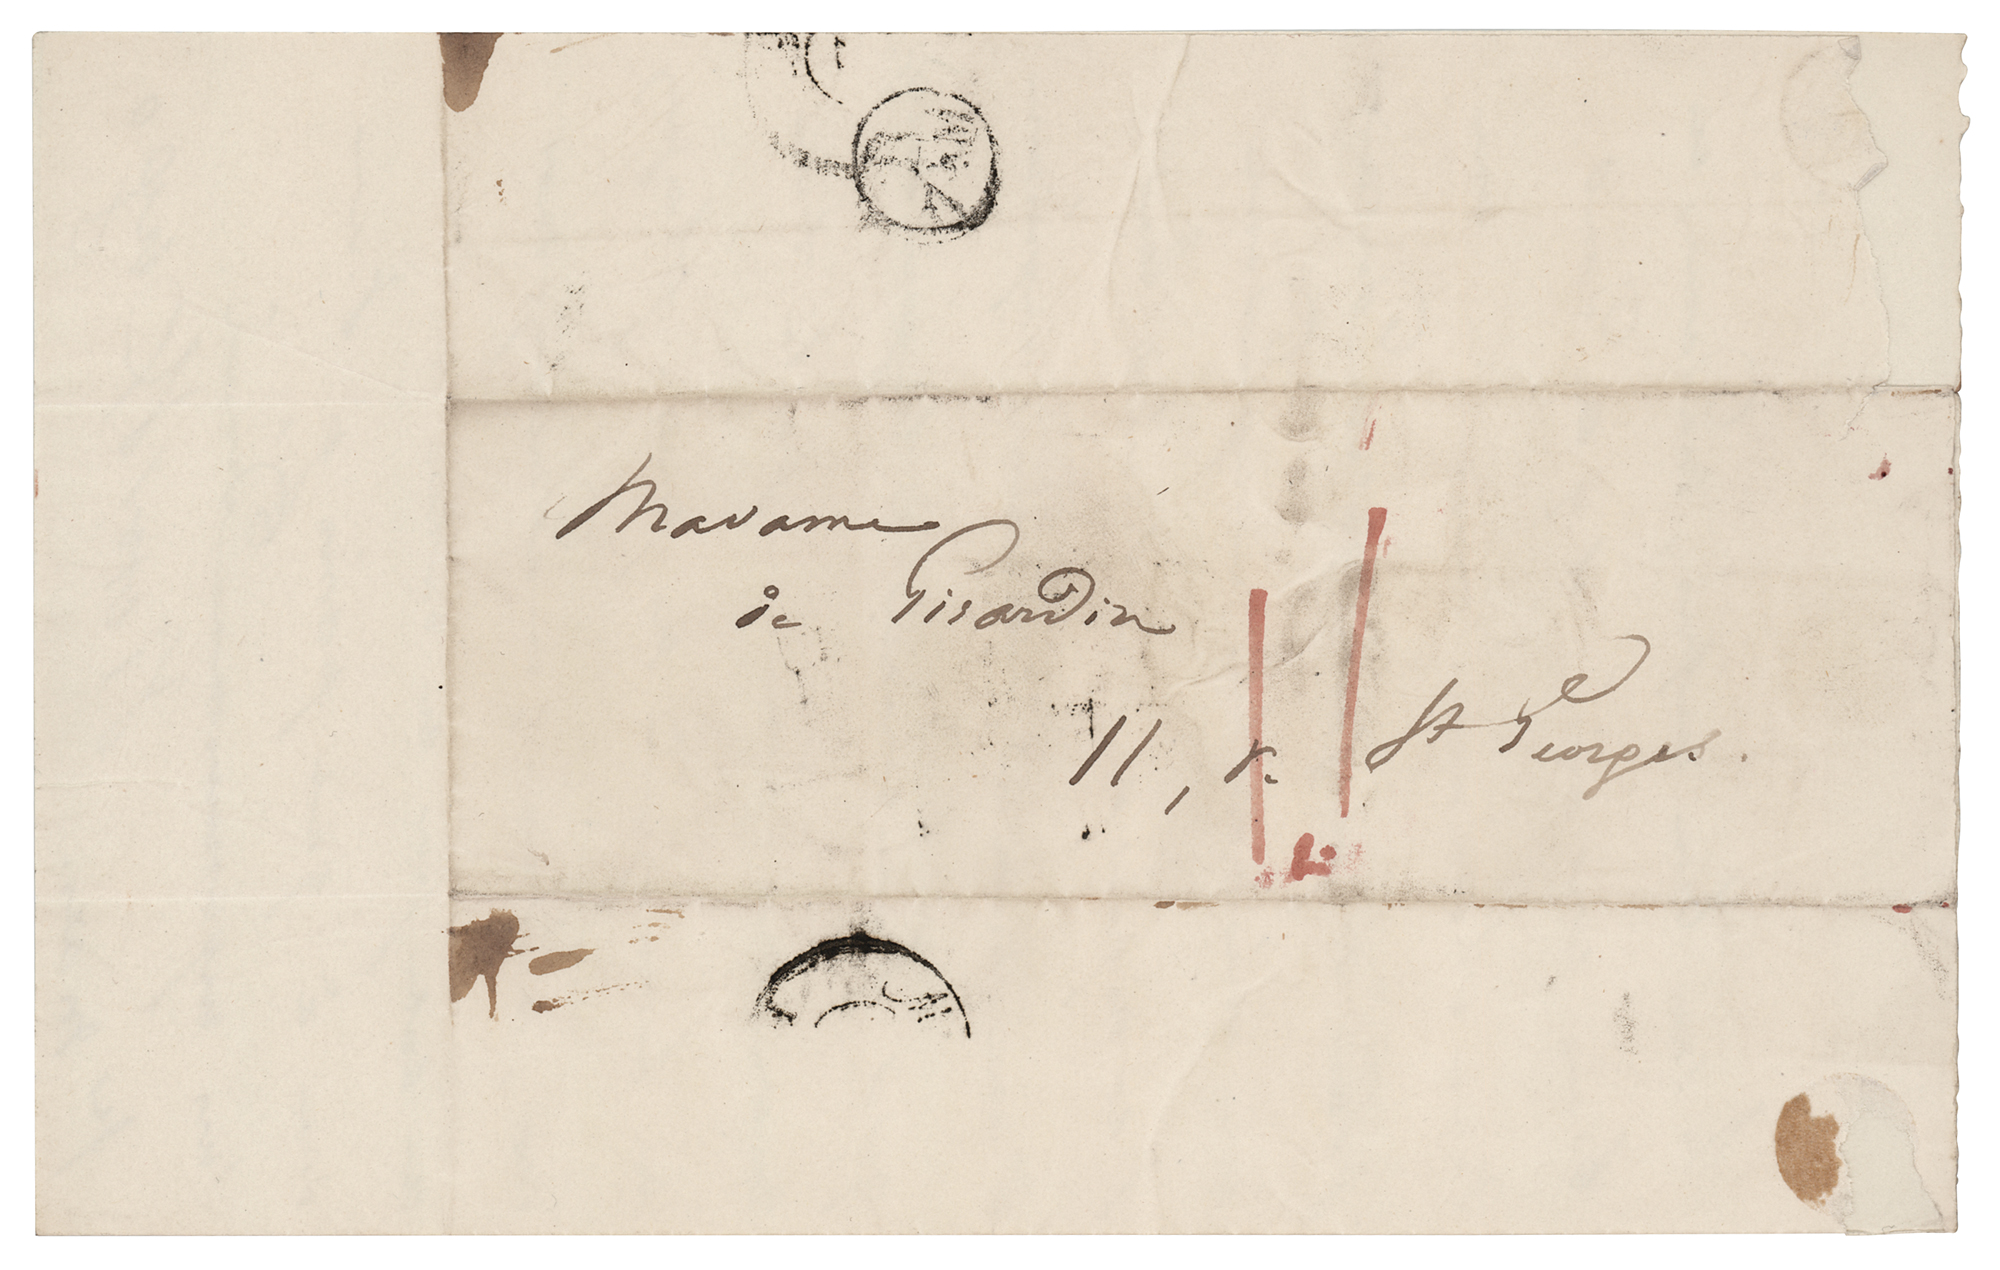 Madame
de Girardin
11, r. St Georges.